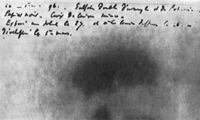 Sulfate double d'uranyle et de Potassium
Papier noir. Croix de cuivre mince
Exposé au soleil le 27. et à la lumière diffuse le 26.
Développé le 1er mars.